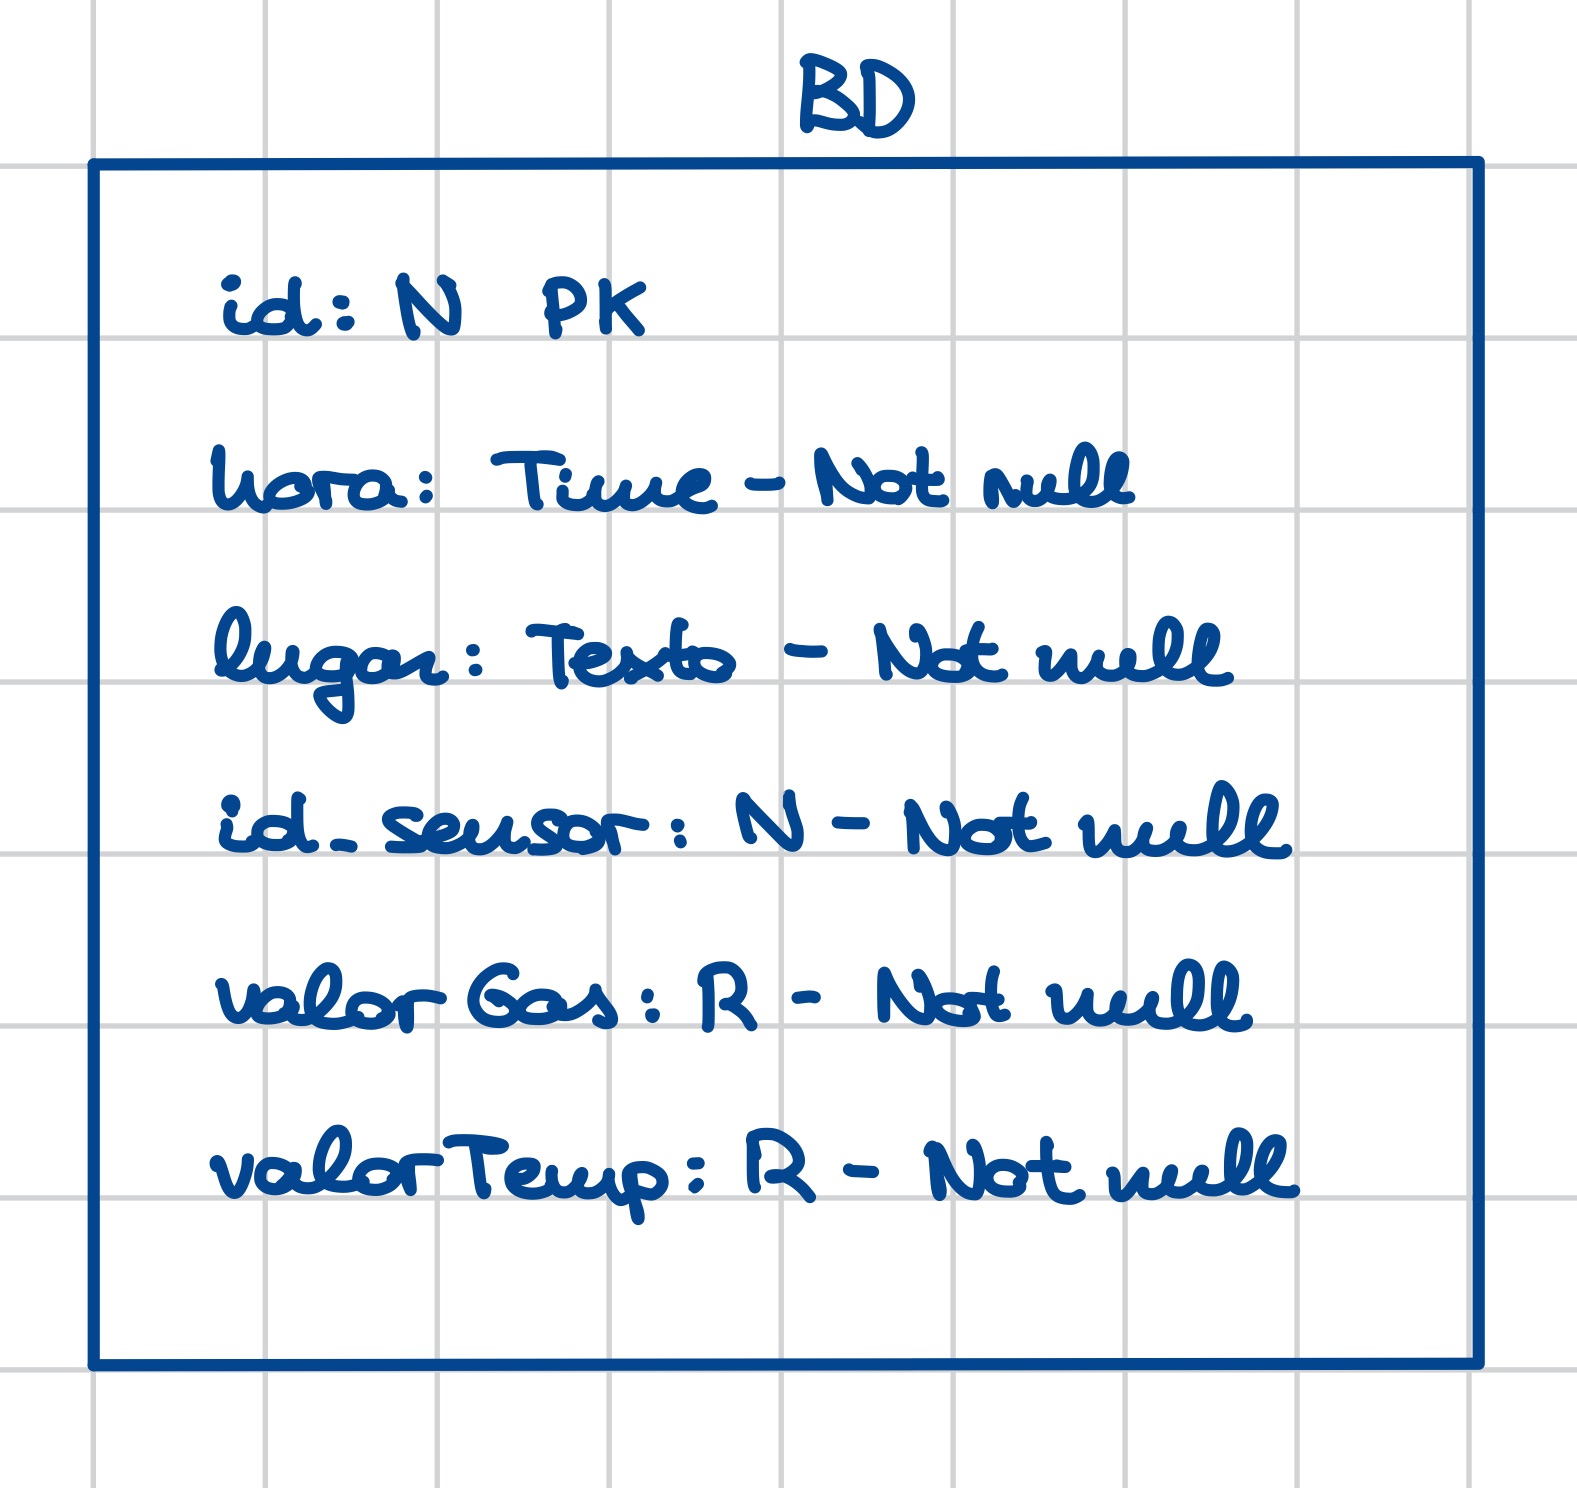 BD
id: N PK
hora: Time - Not null
lugar: Texto - Not null
id_sensor: N - Not null
valorGas: R - Not null
valorTemp: R - Not null